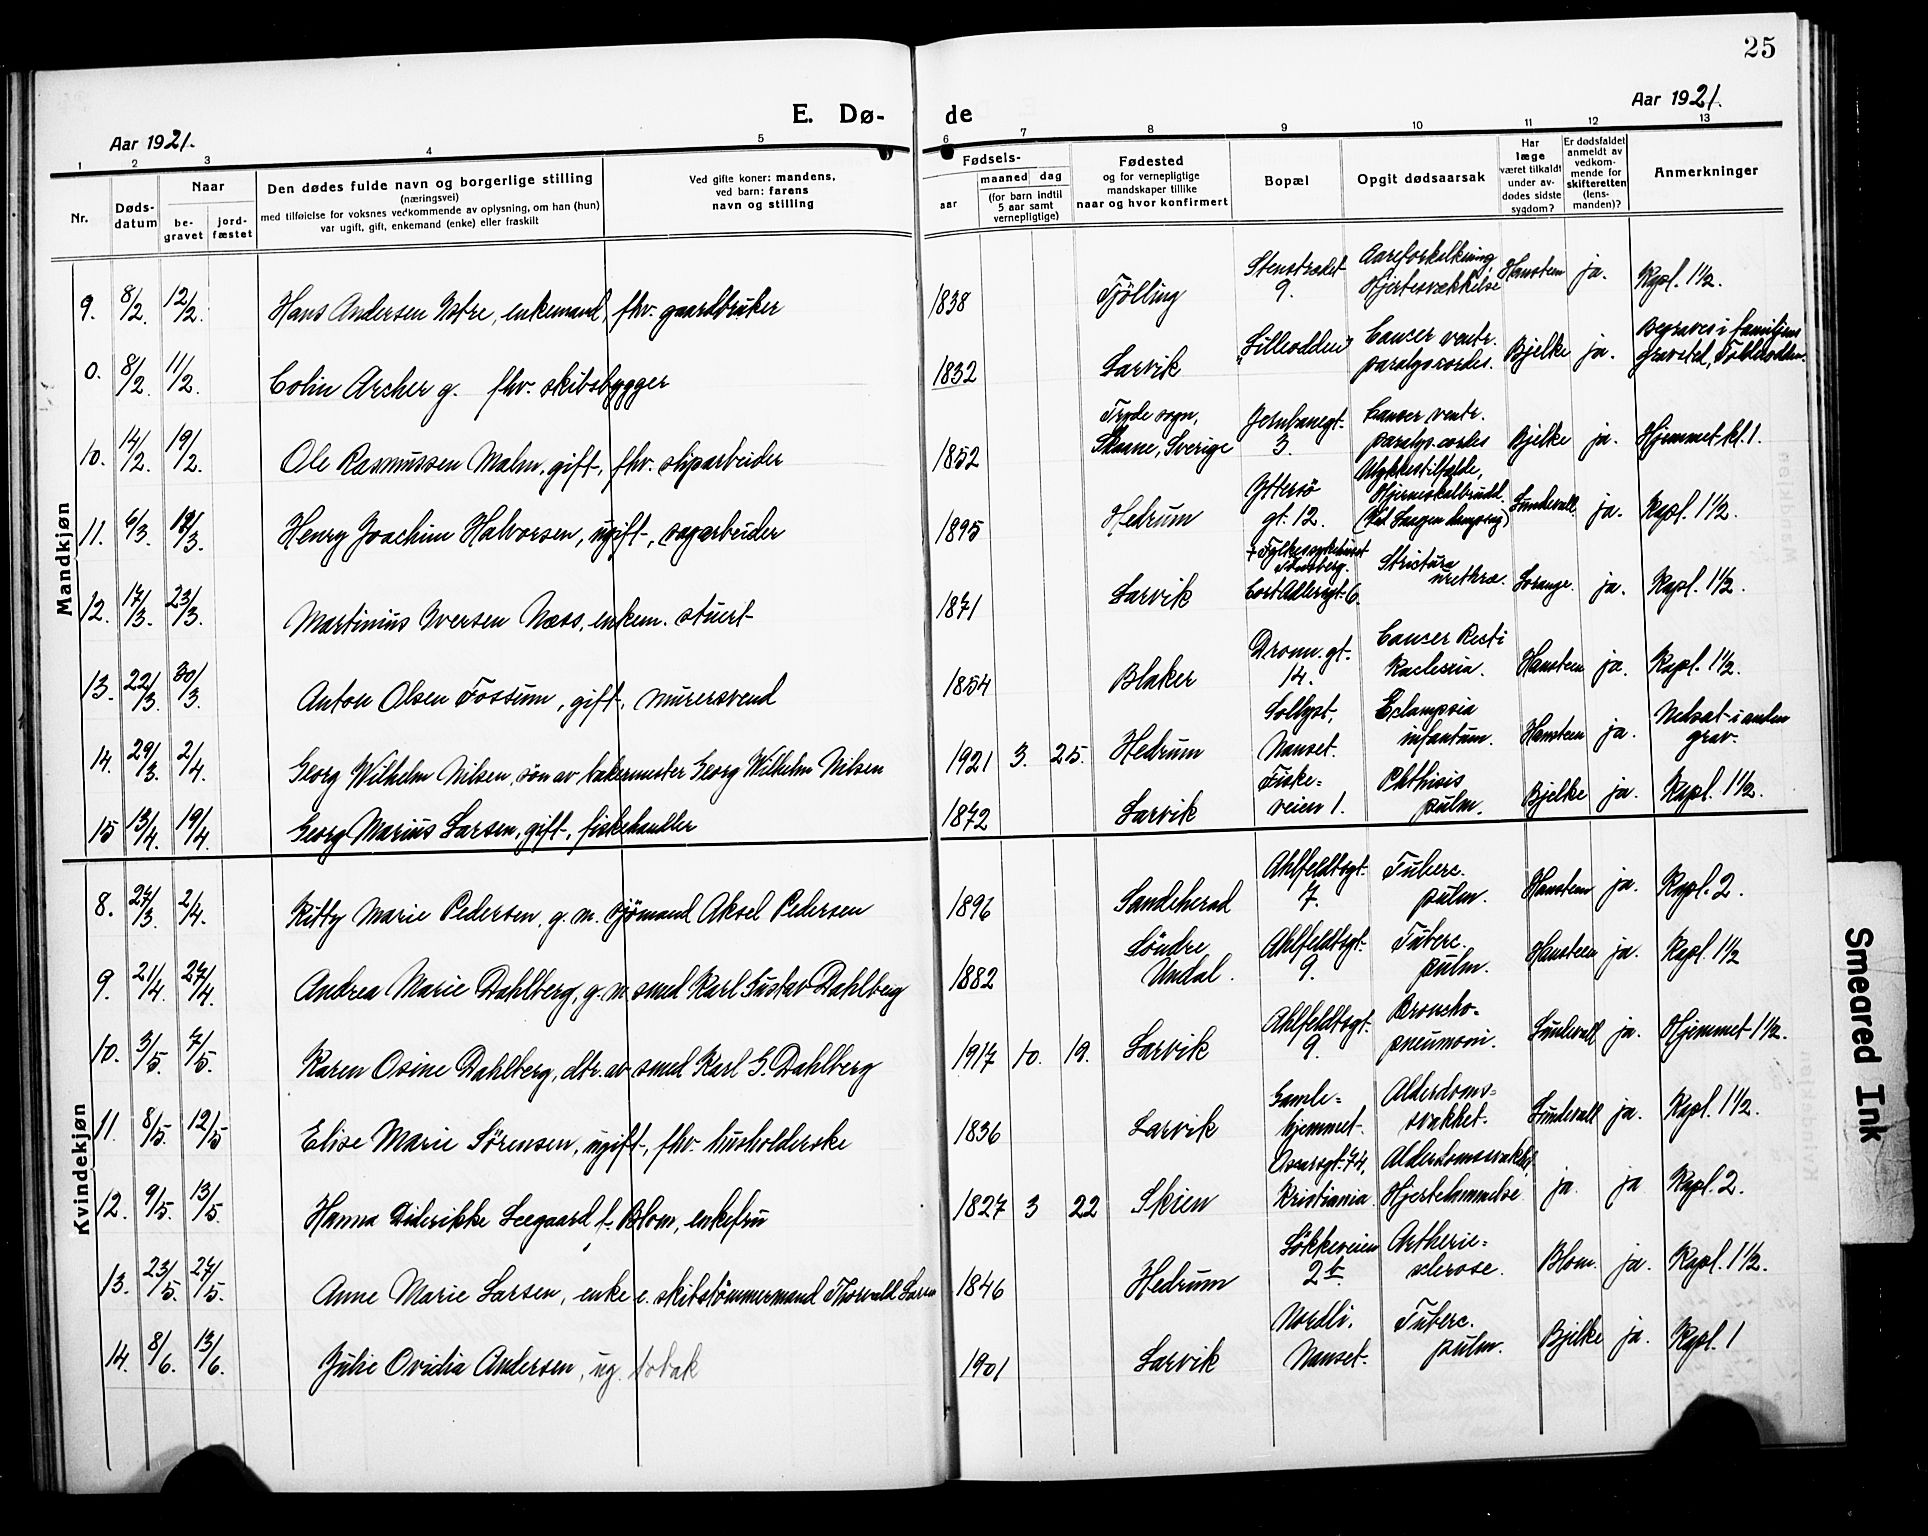 25
E. Dø- de
Aar 1921.
Aar 1921.
1 2 3 4 5 6 7 8 9 10 11 12 13
Nr.
Døds-
datum
Naar
be-
gravet
jord-
fæstet
Den dødes fulde navn og borgerlige stilling
(næringsvei)
med tilføielse for voksnes vedkommende av oplysning, om han (hun)
var ugift, gift, enkemand (enke) eller fraskilt
Ved gifte koner: mandens,
ved barn: farens
navn og stilling
Fødsels-
aar
maaned dag
(for barn indtil
5 aar samt
vernepligtige)
Fødested
og for vernepligtige
mandskaper tillike
naar og hvor konfirmert
Bopæl
Opgit dødsaarsak
Har
læge
været tilkaldt
under av-
dødes sidste
sygdom?
Er dødsfaldet
anmeldt av
vedkom-
mende for
skifteretten
(lens-
manden)?
Anmerkninger
Mandkjøn
9. 8/2. 12/2. Hans Andersen, enkemand, fhv. gaardbruker 1838 Tjölling 9. Aareforkalkning, Hjertesvækkelse Hansteen ja. Kapl. 1 1/2.
0. 8/2. 11/2. Colin Archer g. fhv. skibsbygger 1832 Larvik "Lilleodden" Cancer ventr. paralys. cordis. Bjelke ja. Begraves i familjens gravsted, Tollerodden.
10. 14/2. 19/2. Ole Rasmussen Malm, gift, fhv. sliparbeider 1852 Tryde sogn, Skaane, Sverige Jernbanegt. 3. Cancer ventr. paralys. cordis Bjelke ja. Hjemmet kl. 1.
11. 6/3. 12/3. Henry Joachim Halvorsen, ugift, sagarbeider 1895 Hedrum Yttersö gt. 12. Ulykkestilfælde, Hjerneskalbrudd. (Ved Laagen dampsag) Lundevall ja. Kapl. 1 1/2.
12. 17/3. 23/3. Martinius Iversen Næss, enkem. stuert 1871 Larvik + Fylkessykehuset Tønsberg. Cort Adlersgt. 6. Strictura urethræ. Lorange. ja. Kapl. 1 1/2.
13. 22/3. 30/3. Anton Olsen Fossum, gift, murersvend 1854 Blaker Dronn. gt. 14. Cancer Recti Kachexia. Hansteen ja. Kapl. 1 1/2.
14. 29/3. 2/4. Georg Wilhelm Nilsen, søn av bakermester Georg Wilhelm Nilsen 1921 3. 25. Hedrum Sollyst, Nanset. Eclampsia infantum. Hansteen ja. Nedsat i anden grav.
15 13/4. 19/4. Georg Marius Larsen, gift, fiskehandler 1872 Larvik Fiske= veien 1. Phthisis pulm. Bjelke ja. Kapl. 1 1/2.
Kvindekjøn
8. 27/3. 2/4. Kitty Marie Pedersen, g. m. sjömand Aksel Pedersen 1896 Sandeherad Ahlfeldtsgt. 7. Tuberc. pulm. Hansteen ja. Kapl. 2.
9. 21/4. 27/4. Andrea Marie Dahlberg, g. m. smed Karl Gustav Dahlberg 1882 Söndre Undal. Ahlfeldtsgt. 9. Tuberc. pulm. Hansteen ja. Kapl. 1 1/2
10. 3/5. 7/5. Karen Osine Dahlberg, dtr. av smed Karl G. Dahlberg 1917 10. 19. Larvik Ahlfeldtsgt. 9. Broncho- pneumoni. Lundevall ja. Hjemmet 1 1/2.
11. 8/5. 12/5 Elise Marie Sørensen, ugift, fhv. husholderske 1836 Larvik Gamle= hjemmet. Alderdoms= svakhet. Lundevall ja. Kapl. 1 1/2.
12. 9/5. 13/5. Hanna Diderikke Leegaard f. Blom, enkefru 1827 3 22 Skien Oscarsgt. 74, Kristiania Alderdomssvakhet Hjertelammelse ja. ja Kapl. 2.
13. 23/5. 27/5. Anne Marie Larsen, enke e. skibstömmermand Thorvald Larsen 1846 Hedrum Løkkeveien 2 b. Artherie= sclerose. Blom. ja. Kapl. 1 1/2.
14. 8/6. 13/6. Julie Ovidia Andersen, ug. tobak 1901 Larvik Nordli, Nanset. Tuberc. pulm. Bjelke ja. Kapl. 1
Smeared Ink